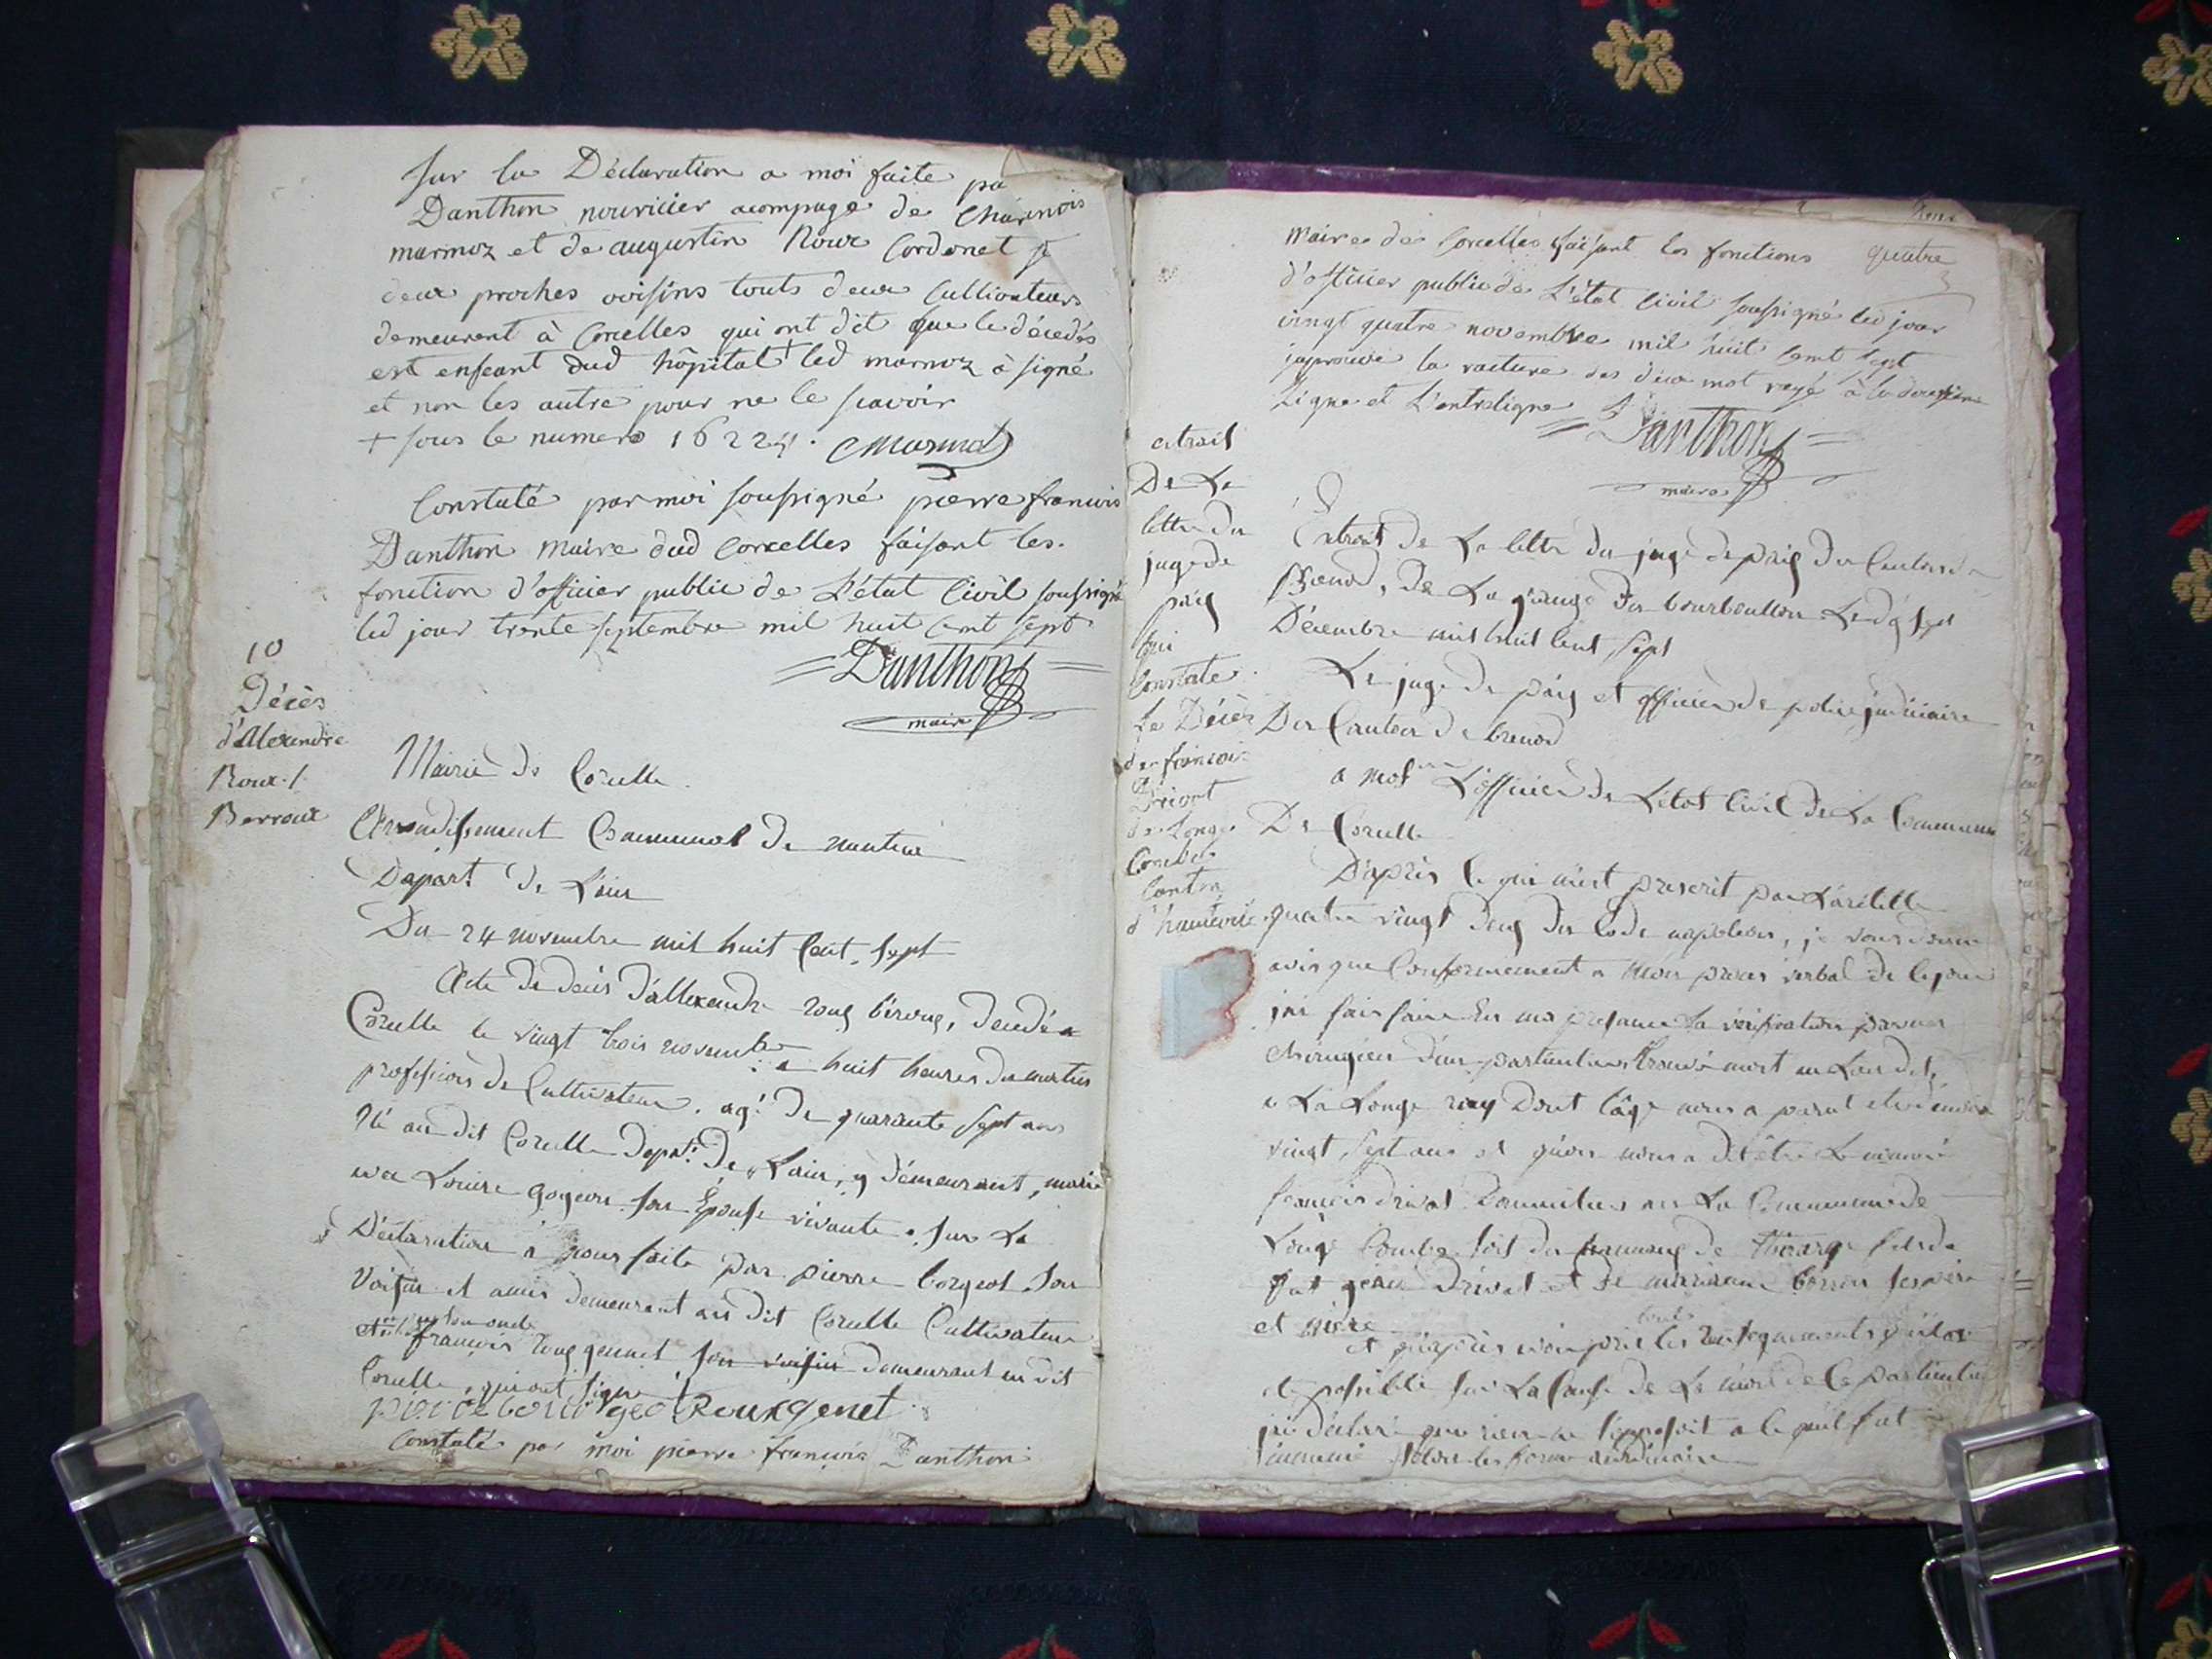 sur la Déclaration a moi faite pa
Danthon nouricier acompagé de
marmoz et de augustin Roux Cordonet
deux proches voisins touts deux Cultivateurs
demeurent à Corcelles qui ont dit que le décedés
est enfeant dud hôpital + led marmoz à signé
et non les autre pour ne le scavoir
+ sous le numero
Constaté par moi soussigné pierre francois
Danthon maire dud Corcelles faisant les
fonction d'officier public de L'état Civil soussigné
led jour trente septembre mil huit Cent sept
Danthon
maire
10
Décès
d'Alexendre
Roux
Berroux
Mairie de Corcelle
Arrondissement Communal de nantua
Depart. de L'ain
Du 24 novembre mil huit Cent sept
Acte de deces d'allexandre roux béroux, décedé a
Corcelle le vingt trois novembre a huit heures du matin
profession de Cultivateur. agé de quarante sept ans
Né au dit Corcelle Depart. De Lain, y demeurant, marié
avec Louise son Epouse vivante. sur la
Déclaration à nous faite par pierre borgeot son
Voisin et amis demeurant au dit Corcelle Cultivateur
son oncle
et de francois roux genet son voisin demeurant au dit
Corcelle, qui ont signé
pierre bourgeot Rouxgenet
Constaté par moi pierre francois Danthon
quatre
maire de Corcelles faisant les fonctions
d'officier public de L'état Civil soussigné led jour
vingt quatre novembre mil huit Cent sept
inprouvé la rature des deux mot rayé à la
Ligne et L'entreligne
Danthon
maire
extrait
De La
lettre du
juge de
paix
qui
Constate
Le Décès
de francois
Drivat
de Longe
Combe
Canton
d'hauteville
Extrait de La lettre du juge de paix du Canton de
Brenod, De La grange du Le dix sept
Décembre mil huit Cent sept
Le juge de paix et officier de police judiciaire
Du Canton de brenod
a Mosieur L'officier de L'état Civil De La Commune
De Corcelle
D'après ce qui m'est prescrit par L'article
quatre vingt deux du Code napoleon, je vous donne
avis que Conformement a Mon proces verbal de ce jour
j'ai fais faire En ma presance La verification par un
chirugien d'un particulier trouvé mort au Lieu dit
a La Longe Dont l'âge nous a parut etre d'environ
vingt sept ans et qu'on nous a dit être Le nommé
francois drivat Domicilier en La Commune de
Longe Combe fils de
feu Drivat et de marianne ses père
et mère
touts
et qu'après avoir pris les renseignements qu'il a
été possible sur La Cause de La mort de Ce particulier
j'ai déclaré que rien ne s'opposoit a ce qu'il fut
inhumé selon les forme ordinaire